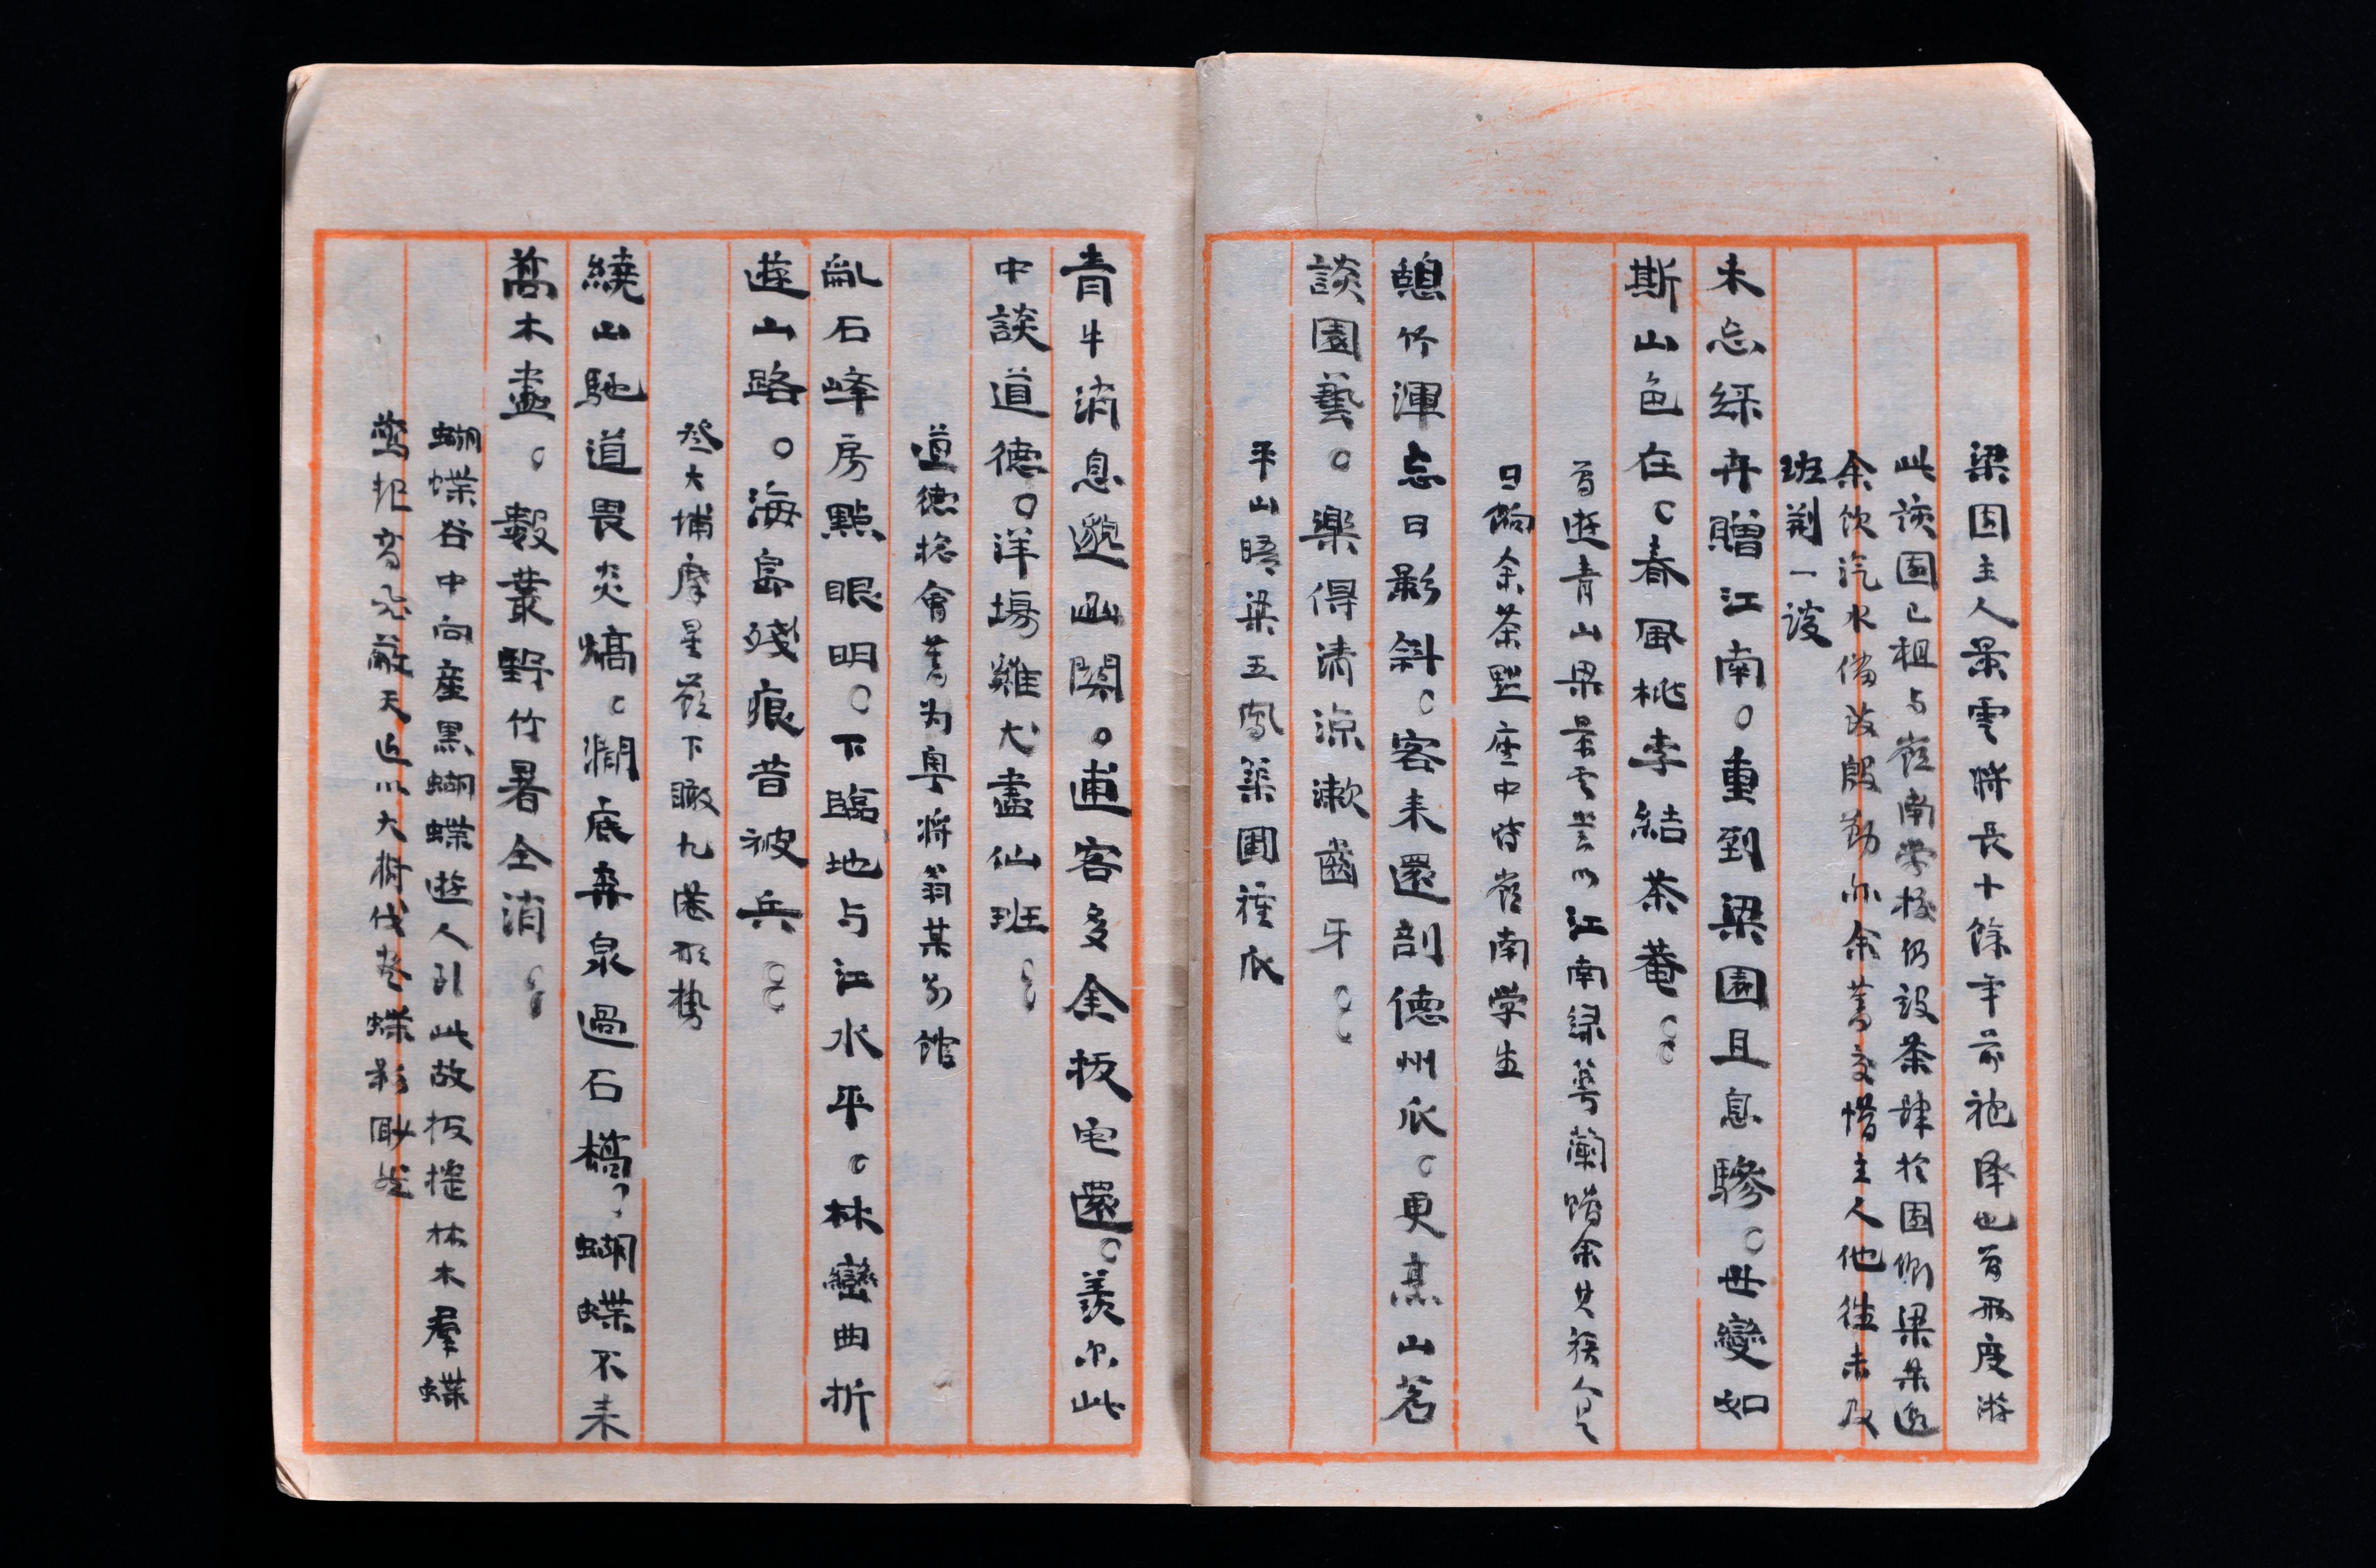 梁園主人景雲將長十餘年前袍澤也曾兩度游
此該園已租与嶺南学校仍設茶肆於園側梁某邀
余飲汽水備致殷勤亦余舊交惜主人他往未及
班荆一談
未忘綵卉贈江南。重到梁園且息驂。世變如
斯山色在。春風桃李結茶菴。
曾遊青山梁景雲嘗以江南緑萼蘭贈余其族人是
日餉余茶點座中皆嶺南学生
憩竹渾忘日影斜。客来還剖德州瓜。更烹山茗
談園藝。樂得清涼漱齒牙。
平山晤梁玉鳳築圃種瓜
青牛消息邈幽關。逋客多金扳宅還。羨尔此
中談道德。洋場雞犬盡仙班。
道德總會舊为粤將翁某別館
亂石峰房點眼明。下臨地与江水平。林巒曲折
遊山路。海島殘痕昔被兵。
登大埔摩星嶺下瞰九港形势
繞山馳道畏炎熇。澗底奔泉過石橋。蝴蝶不来
喬木盡。數叢野竹暑全消。
蝴蝶谷中向産黒蝴蝶遊人到此故扳撼林木羣蝶
驚起高飛蔽天近以大樹伐盡蝶影闃然